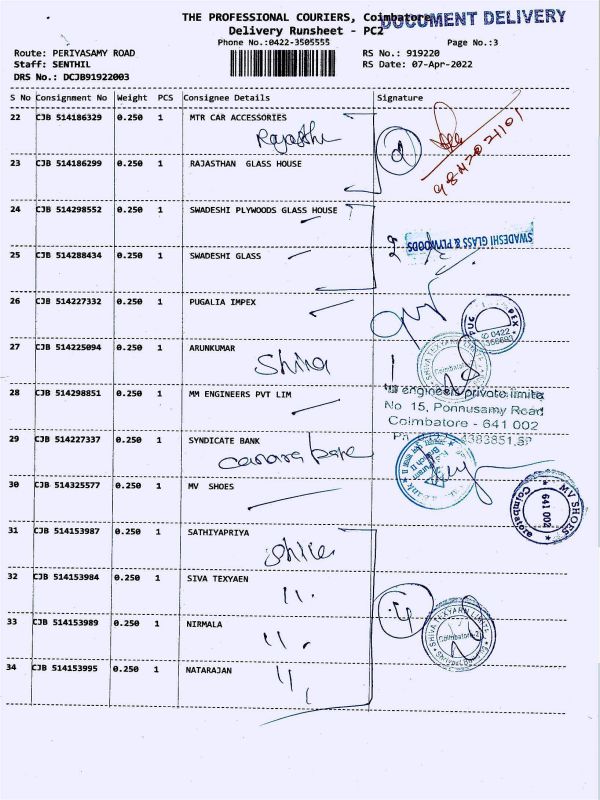 THE PROFESSIONAL COURIERS, Coimbatore
DOCUMENT DELIVERY
Delivery Runsheet - PC2
Phone No.:0422-3505555 Page No.:3
Route: PERIYASAMY ROAD RS No.: 919220
Staff: SENTHIL RS Date: 07-Apr-2022
DRS No.: DCJB91922003
S No Consignment No Weight PCS Consignee Details Signature
22 CJB 514186329 0.250 1 MTR CAR ACCESSORIES
23 CJB 514186299 0.250 1 RAJASTHAN GLASS HOUSE
24 CJB 514298552 0.250 1 SWADESHI PLYWOODS GLASS HOUSE
SWADESHI GLASS & PLYWOODS
25 CJB 514288434 0.250 1 SWADESHI GLASS
26 CJB 514227332 0.250 1 PUGALIA IMPEX
27 CJB 514225094 0.250 1 ARUNKUMAR
Shiva
28 CJB 514298851 0.250 1 MM ENGINEERS PVT LIM
engineers private limite
No 15, Ponnusamy Road
Coimbatore - 641 002
29 CJB 514227337 0.250 1 SYNDICATE BANK
canara bank
30 CJB 514325577 0.250 1 MV SHOES
MV SHOES
Coimbatore
641 002
31 CJB 514153987 0.250 1 SATHIYAPRIYA
32 CJB 514153984 0.250 1 SIVA TEXYAEN
33 CJB 514153989 0.250 1 NIRMALA
SHIVA TEXYARN LIMITED
Coimbatore
34 CJB 514153995 0.250 1 NATARAJAN